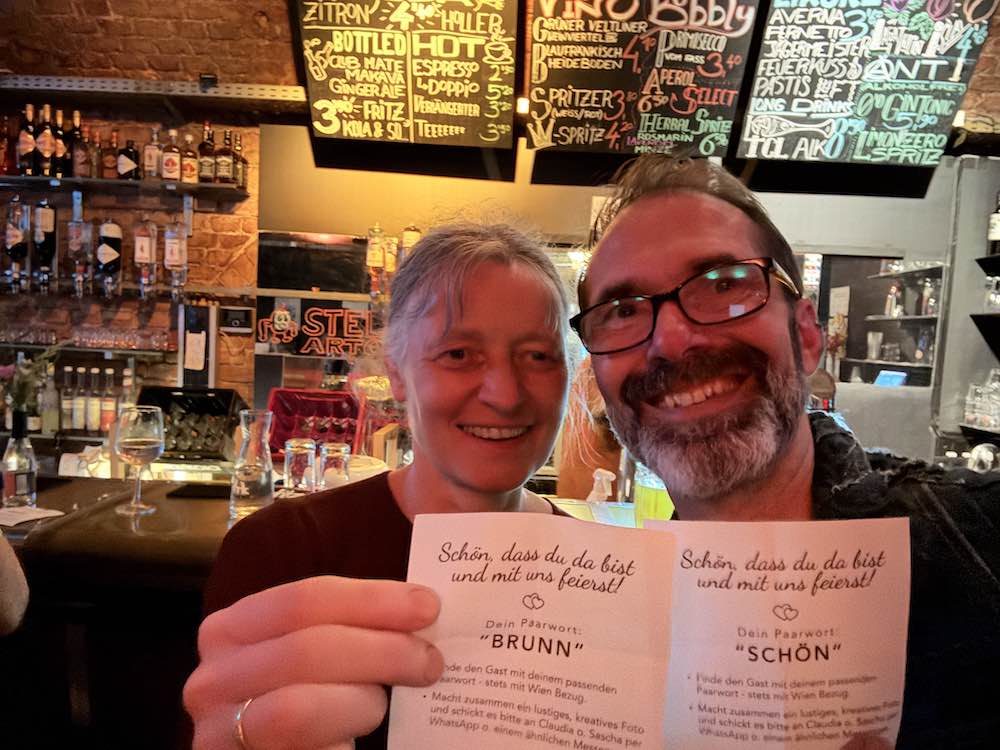 ZITRON 4.40 HOLLER
BOTTLED
CLUB MATE
MAKAVA
GINGERALE
3.90 FRITZ
KOLA & SO
HOT
ESPRESSO
DOPPIO
VERLÄNGERTER
TEEEEEEE
VINO
GRÜNER VELTLINER
WEINVIERTEL
BLAUFRÄNKISCH
HEIDEBODEN
SPRITZER 3.80
SPRITZ 4.20
Bobbly
PROMISECCO
VOM FASS 3.40
APEROL
6.50 SELECT
HERBAL SPRITZ
ROSMARIN
LAVENDEL
MINZE
AVERNA
FERNETTO
JÄGERMEISTER
FEUERKUSS
PASTIS
LONG DRINKS
ANTI
ALKOHOLFREI
0% GIN TONIC
5.90
LIMONZERO
SPRITZ
STEL
ARTO
Schön, dass du da bist
und mit uns feierst!
Dein Paarwort:
"BRUNN"
Finde den Gast mit deinem passenden
Paarwort - stets mit Wien Bezug.
• Macht zusammen ein lustiges, kreatives Foto
und schickt es bitte an Claudia o. Sascha per
WhatsApp o. einem ähnlichen
Schön, dass du da bist
und mit uns feierst!
Dein Paarwort:
"SCHÖN"
• Finde den Gast mit deinem passenden
Paarwort - stets mit Wien Bezug.
• Macht zusammen ein lustiges, kreatives Foto
und schickt es bitte an Claudia o. Sascha per
WhatsApp o. einem ähnlichen